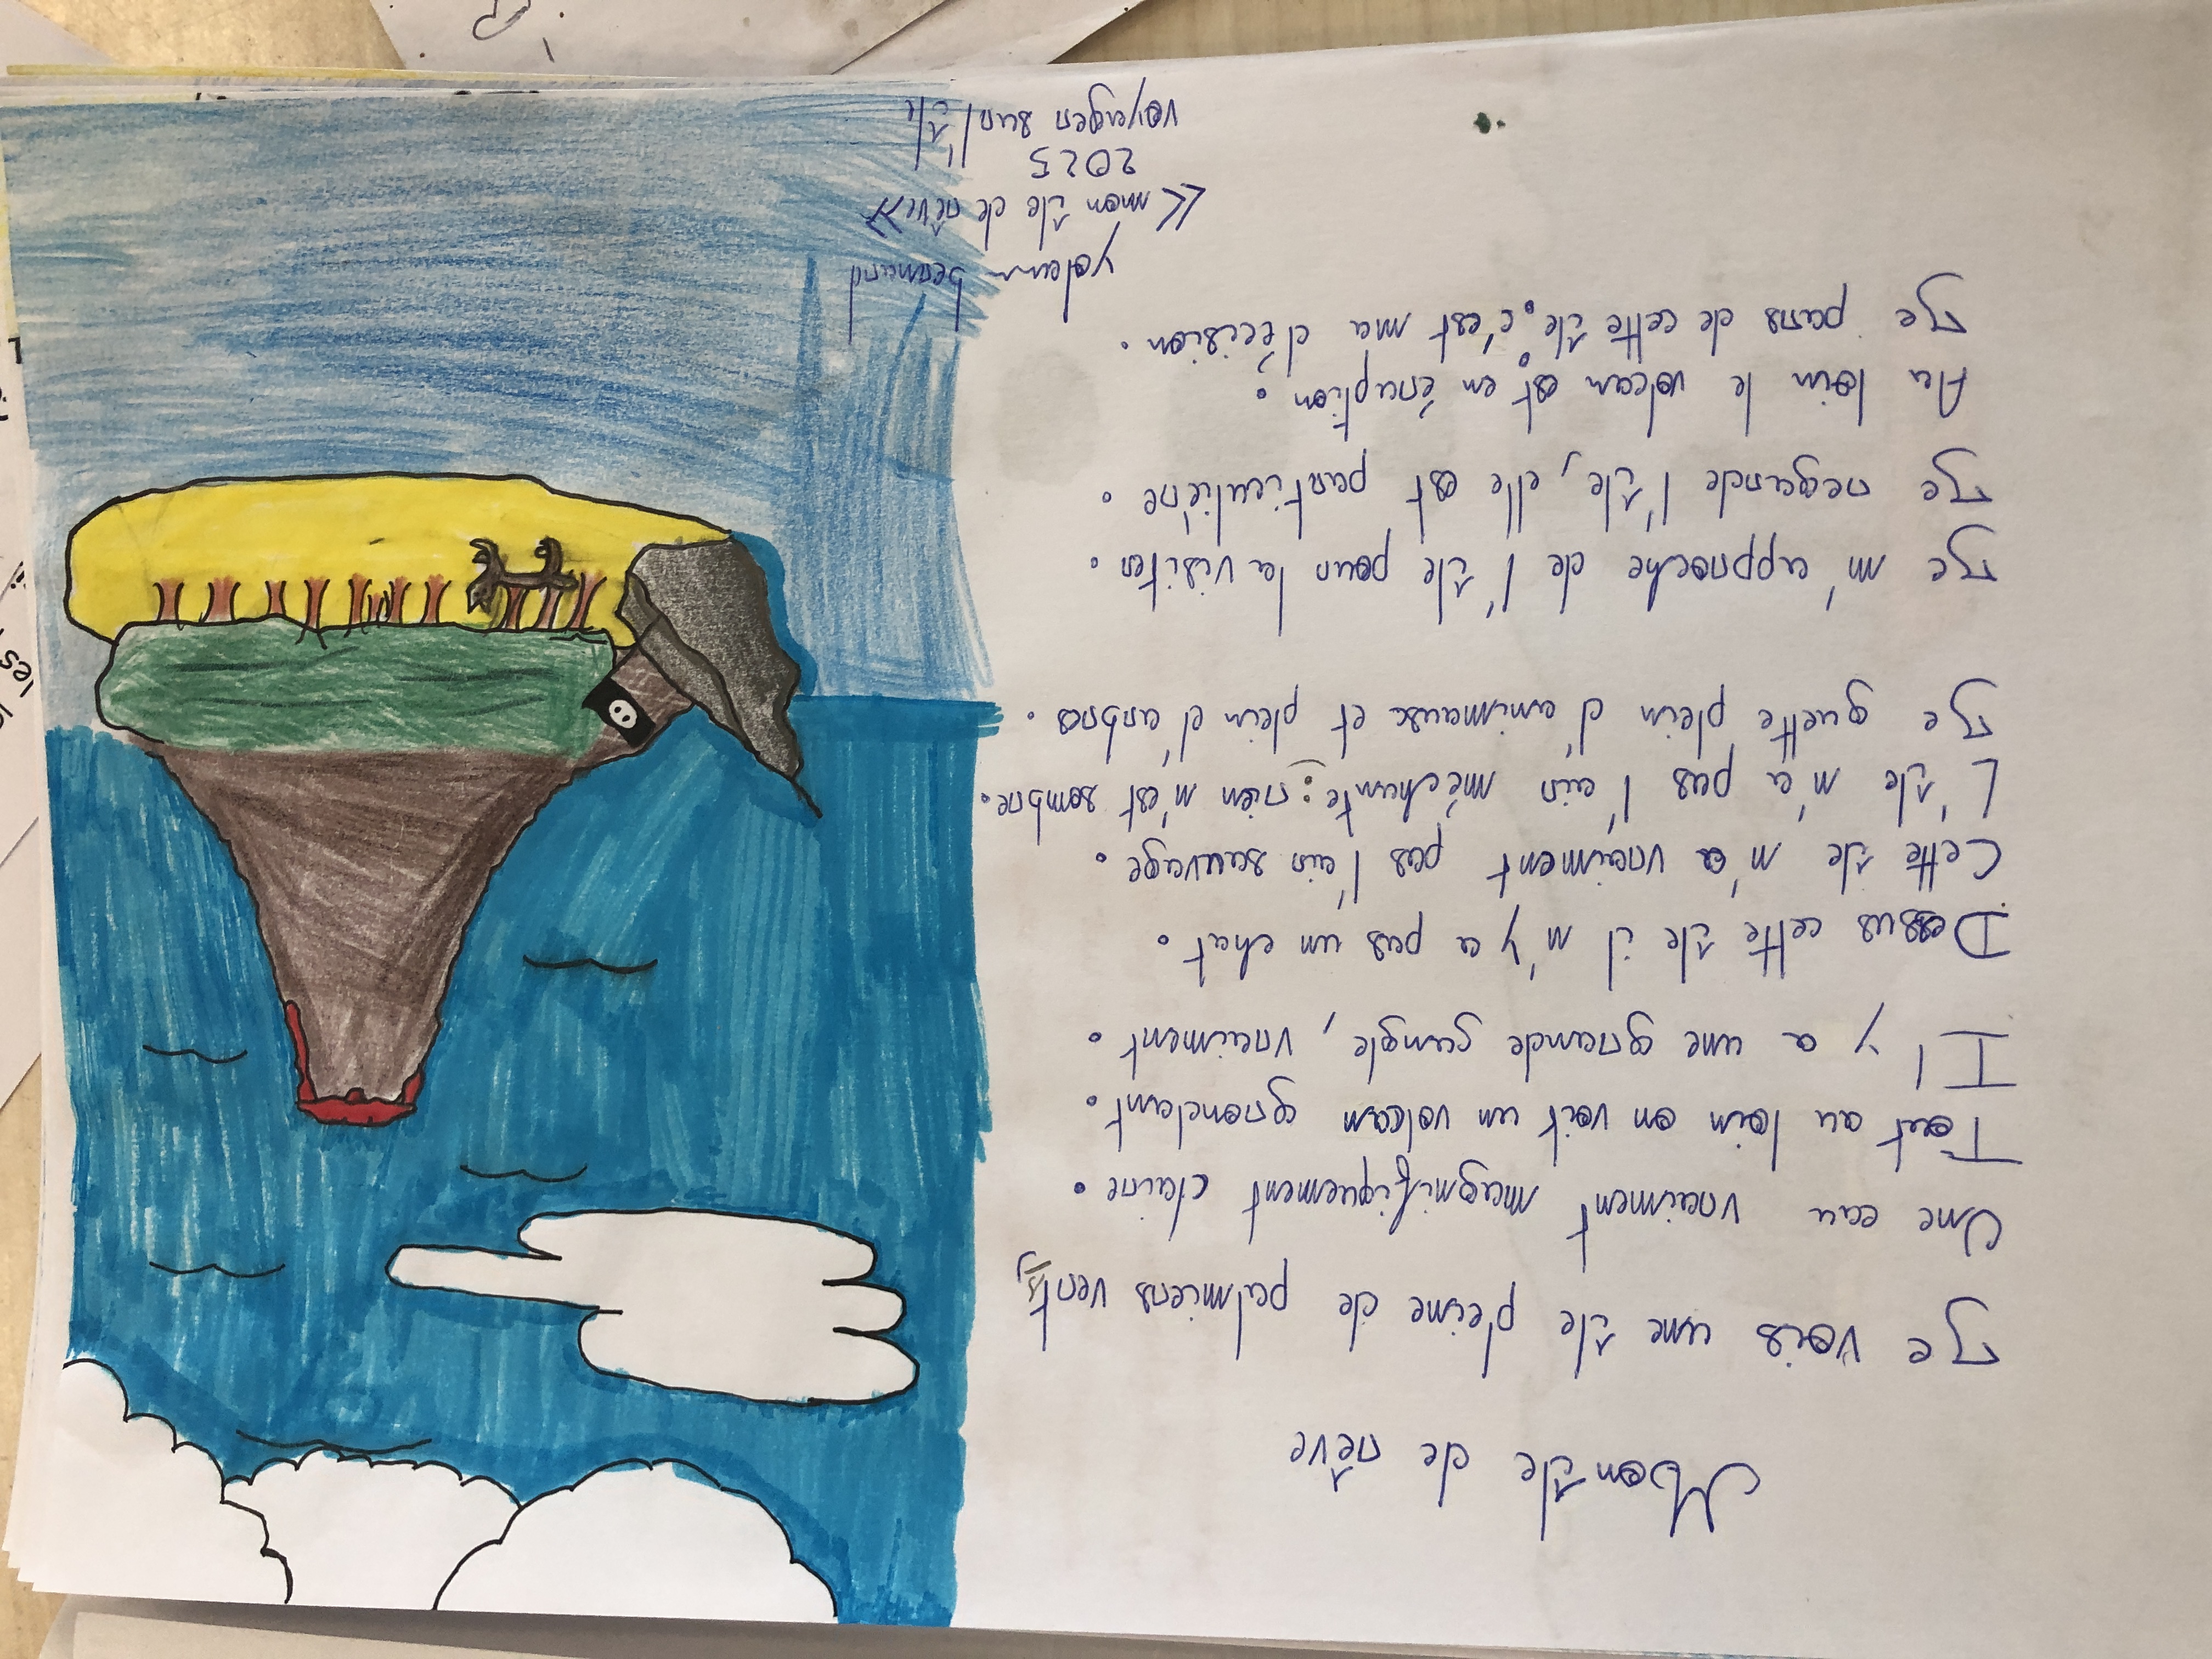 Mon île de rêve
Je vois une île pleine de palmiers verts,
Une eau vraiment magnifiquement claire.
Tout au loin on voit un volcan grondant.
Il y a une grande jungle, vraiment.
Dessus cette île il n'y a pas un chat.
Cette île n'a vraiment pas l'air sauvage.
L'île n'a pas l'air méchante : rien n'est sombre.
Je guette plein d'animaux et plein d'arbres.
Je m'approche de l'île pour la visiter.
Je regarde l'île, elle est particulière.
Au loin le volcan est en éruption.
Je pars de cette île : c'est ma décision.
«mon île de rêve»
2025
voyager sur l'île